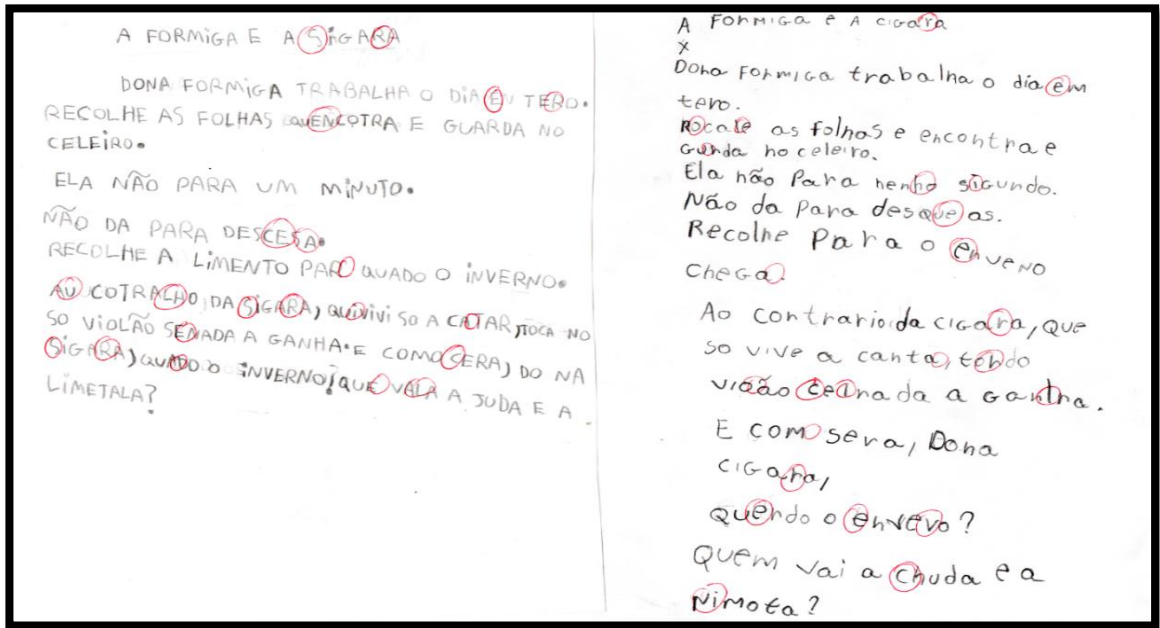 A FORMIGA E A SIGARA
DONA FORMIGA TRABALHA O DIA EN TERO.
RECOLHE AS FOLHAS QUENCOTRA E GUARDA NO
CELEIRO.
ELA NÃO PARA UM MINUTO.
NÃO DA PARA DESCESA.
RECOLHE A LIMENTO PARO QUADO O INVERNO.
AU COTRALHO DA SIGARA, QUIVIVI SO A CATAR, TOCA NO
SO VIOLÃO SENADA A GANHA. E COMO SERA, DO NA
SIGARA, QUADO O INVERNO? QUE VALA A JUDA E A
LIMETALA?
A FORMIGA e A CIGara
x
Dona FORMIGA trabalha o dia em
tero.
Rocale as folhas e encontra e
Gunda no celeiro.
Ela não Para nenho sigundo.
Não da Para desque as.
Recolhe Para o enveno
chega.
Ao contrario da CIGara, que
so vive a canta, tendo
viaão ceinada a Ganhna.
E como sera, Dona
CIGara,
Quendo o envevo?
Quem vai a chuda e a
Nimota?